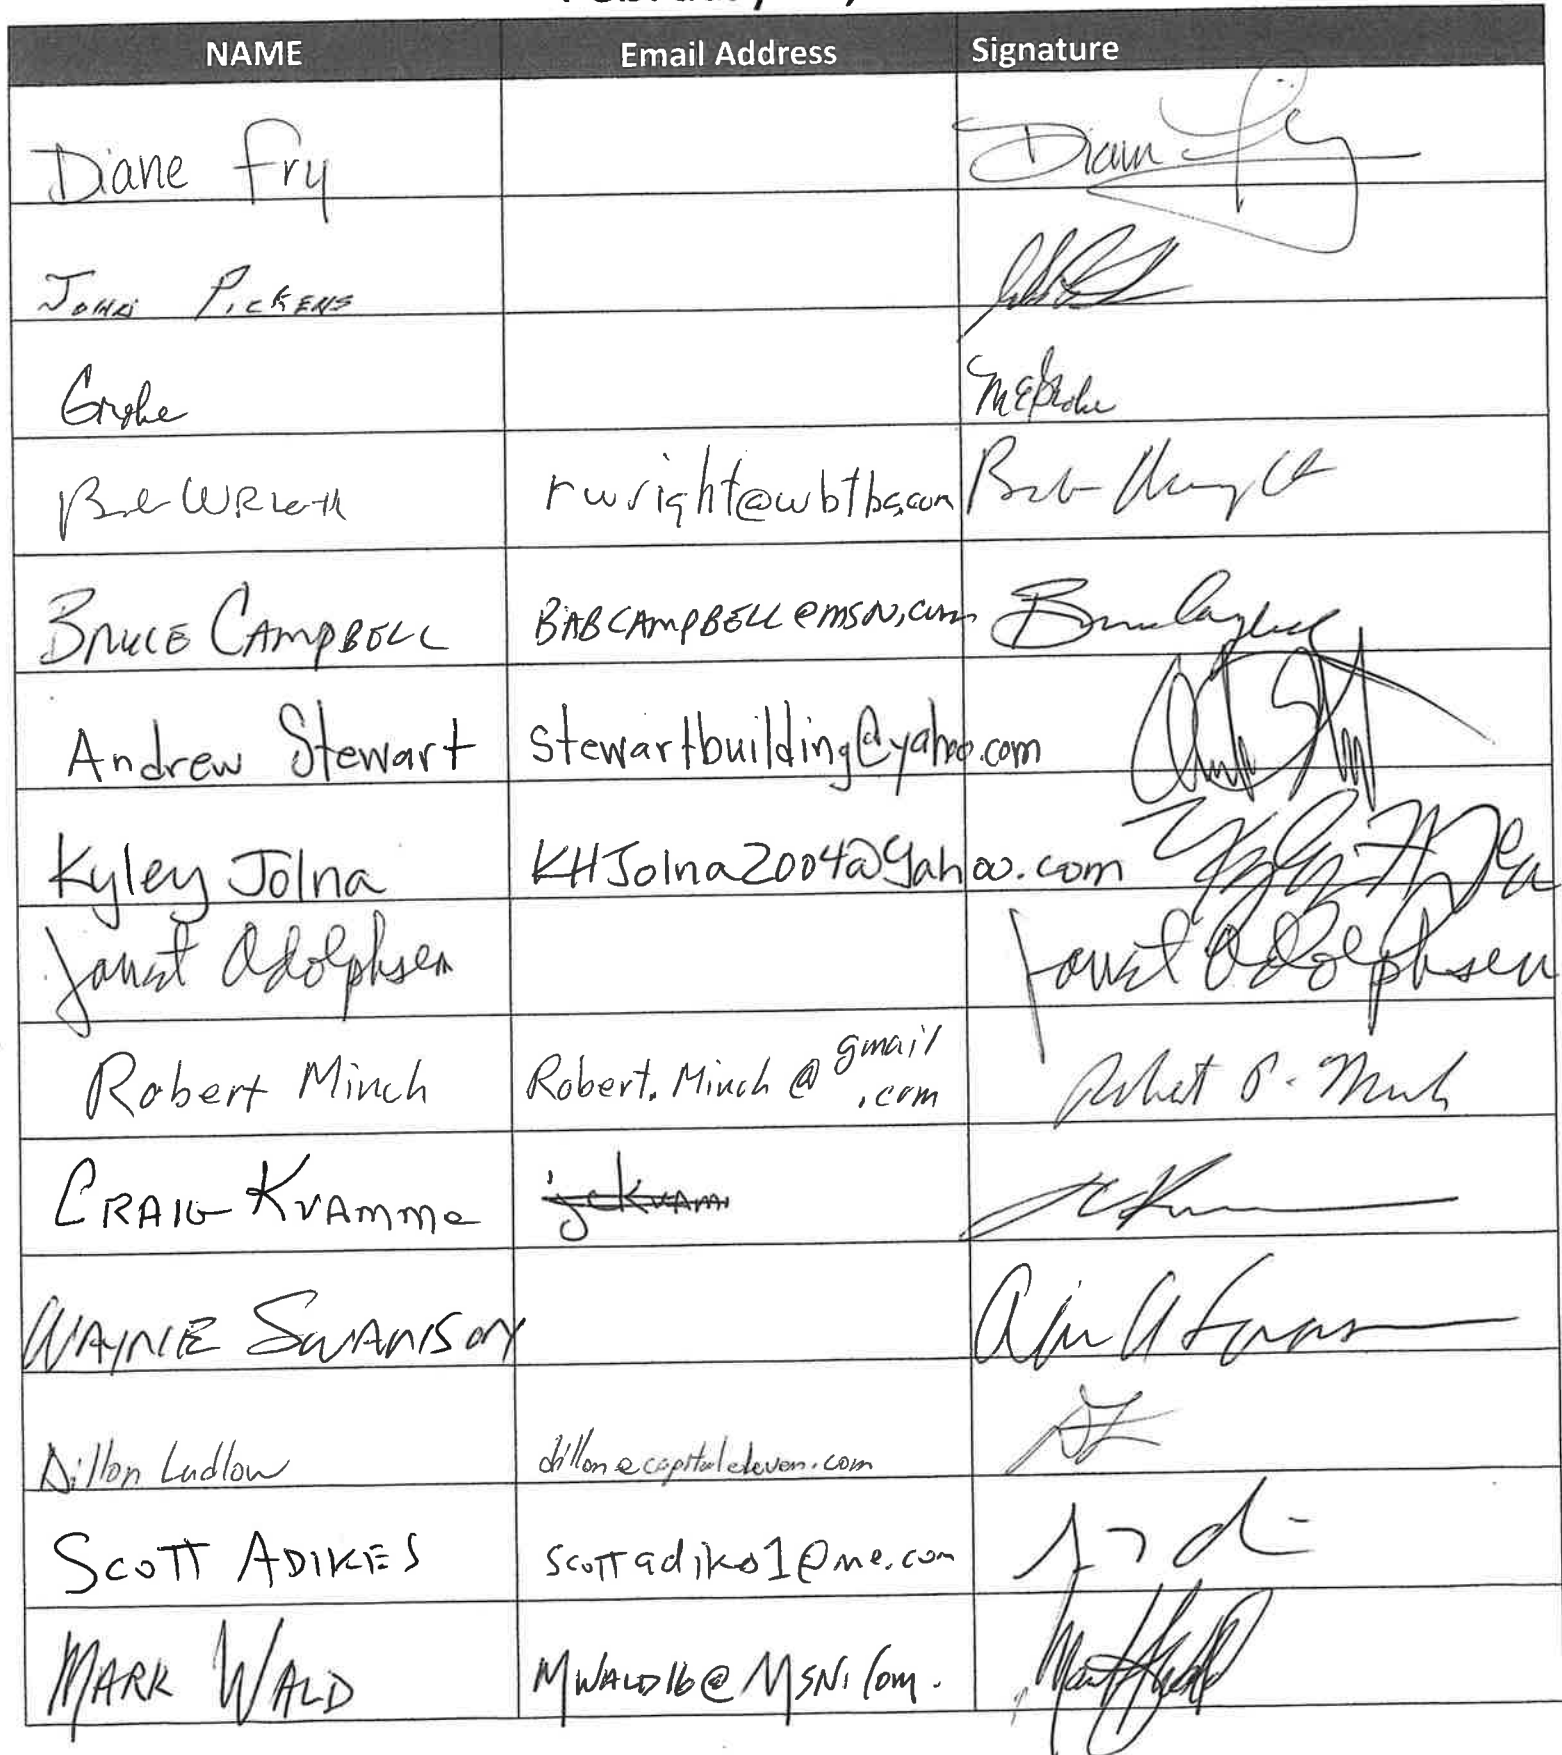 NAME Email Address Signature
Diane Fry Diane Fry
JOHN PICKENS
Grohe
Bob WRIGHT rwright@wbtbc.com Bob Wright
BRUCE CAMPBELL BABCAMPBELL@MSN.com Bruce Campbell
Andrew Stewart stewartbuilding@yahoo.com
Kyley Jolna KHJolna2004@Yahoo.com
Janet Adolphsen Janet Adolphsen
Robert Minch Robert.Minch@gmail.com Robert P. Minch
CRAIG KVAMME jckvam
WAYNE SWANSON
Dillon Ludlow dillon@capitaleleven.com
SCOTT ADIKES scottadikes1@me.com
MARK WALD MWALD16@MSN.Com.